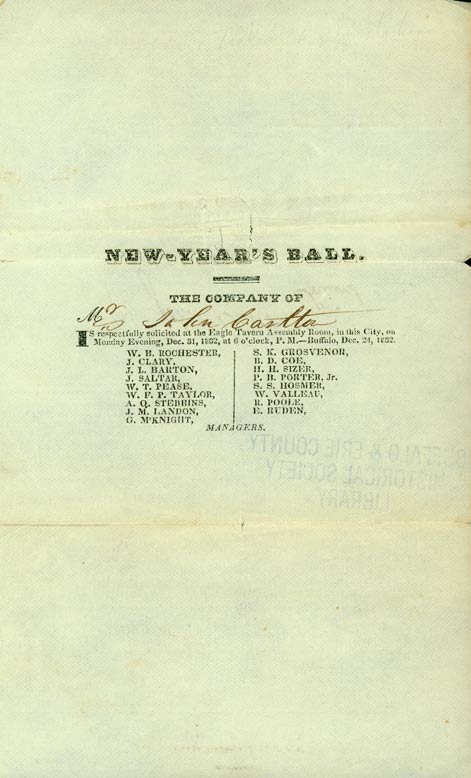 NEW-YEAR'S BALL.
THE COMPANY OF
Mr John Carlton
IS respectfully solicited at the Eagle Tavern Assembly Room, in this City, on
Monday Evening, Dec. 31, 1832, at 6 o'clock, P. M.—Buffalo, Dec. 24, 1832.
W. B. ROCHESTER,
J. CLARY,
J. L. BARTON,
J. SALTAR,
W. T. PEASE,
W. F. P. TAYLOR,
A. Q. STEBBINS,
J. M. LANDON,
G. M'KNIGHT,
S. K. GROSVENOR,
B. D. COE,
H. H. SIZER,
P. B. PORTER, Jr.
S. S. HOSMER,
W. VALLEAU,
R. POOLE,
E. RUDEN,
MANAGERS.
BUFFALO & ERIE COUNTY
HISTORICAL SOCIETY
LIBRARY